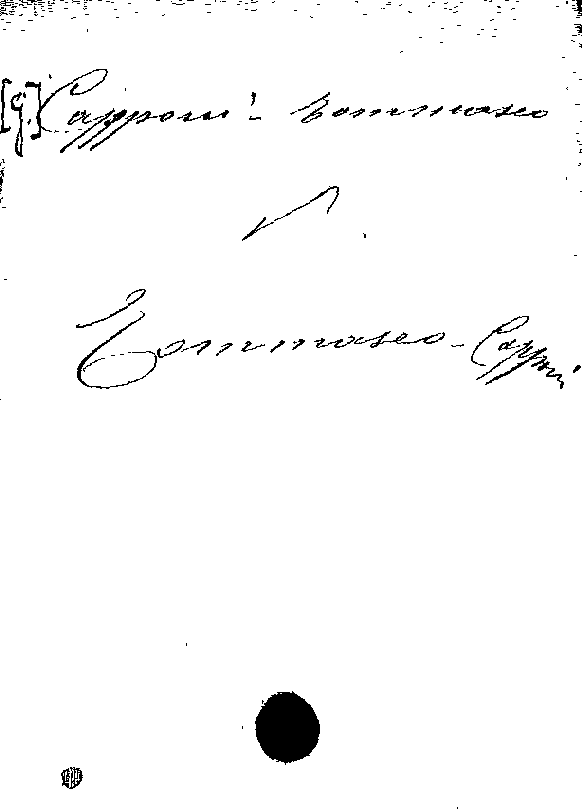 [g.] Capponi - Tommaseo
V.
Tommaseo - Capponi